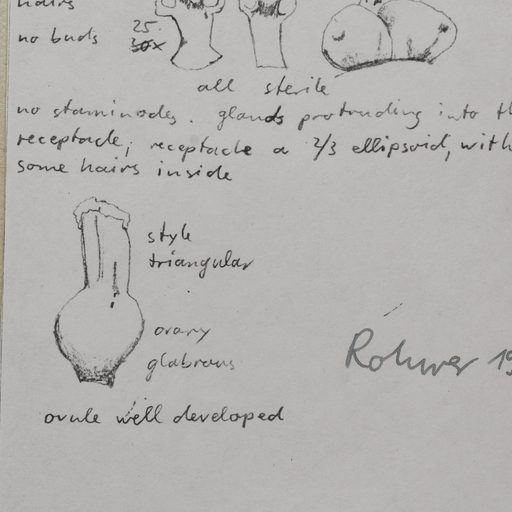 hairs
no buds
25
30x
all sterile
no staminodes. glands protruding into th
receptacle; receptacle a 2/3 ellipsoid, with
some hairs inside
style
triangular
ovary
glabrous
Rohwer 19
ovule well developed